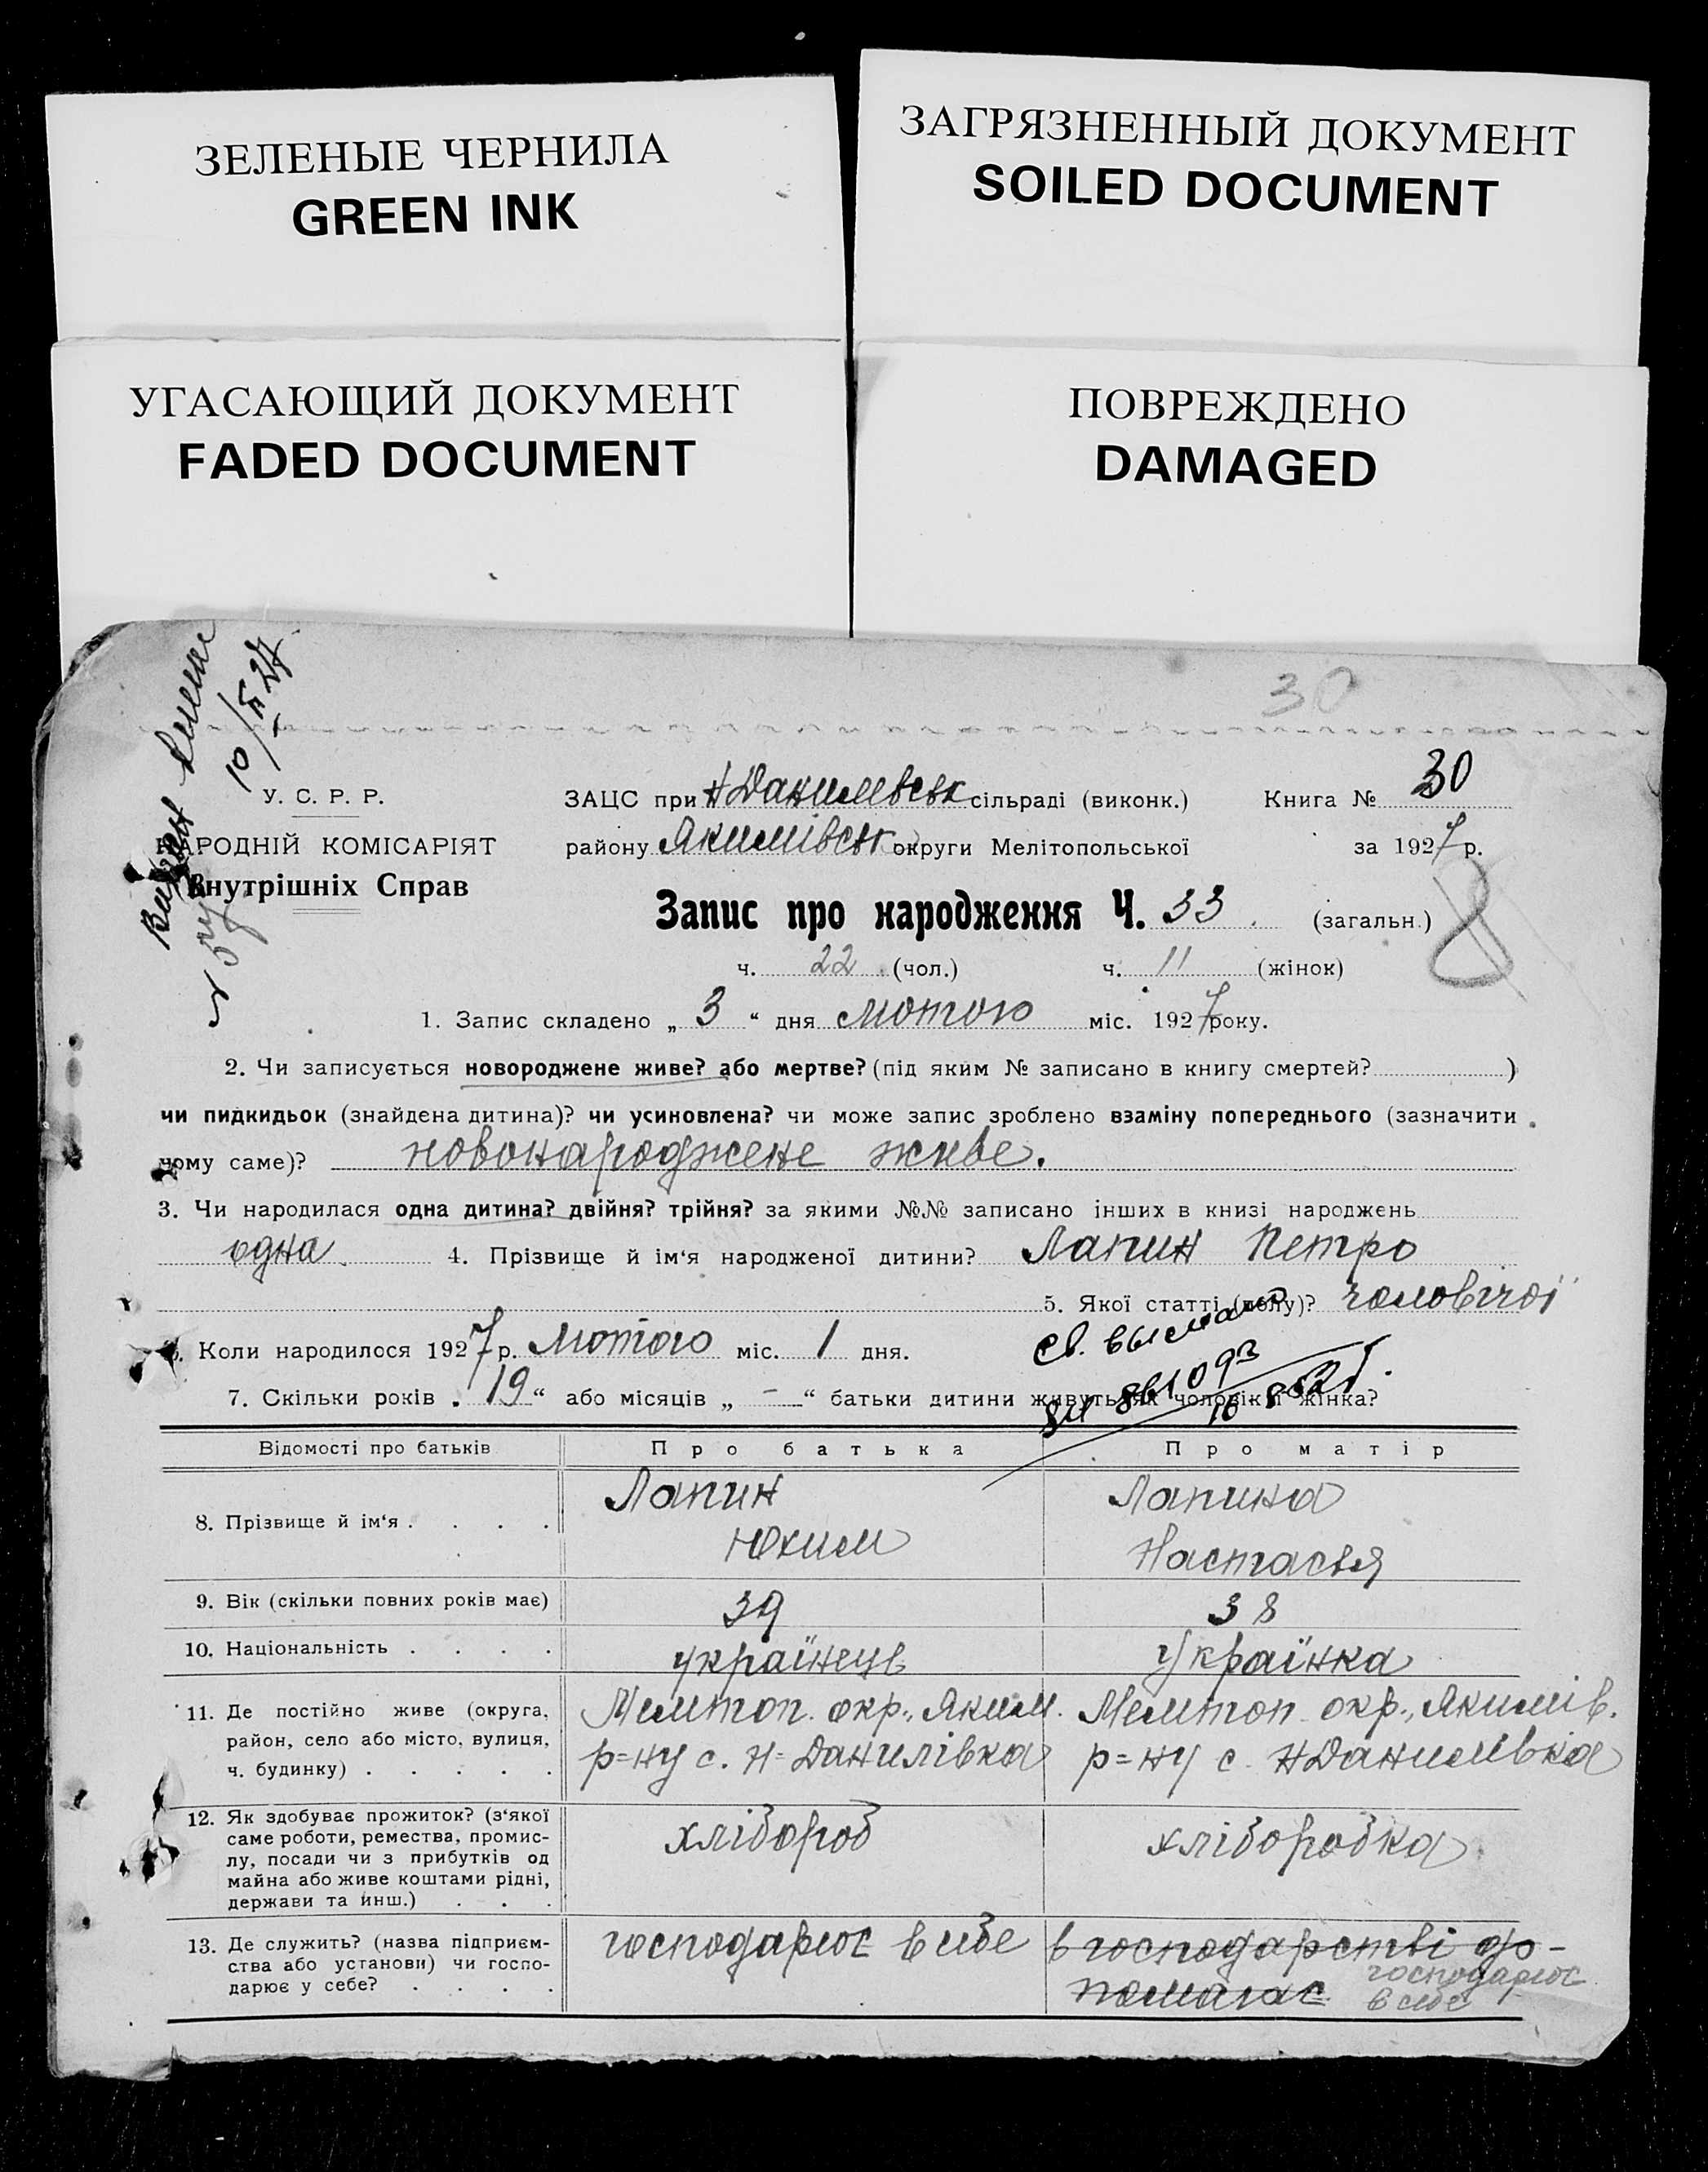 ЗЕЛЕНЫЕ ЧЕРНИЛА
GREEN INK
ЗАГРЯЗНЕННЫЙ ДОКУМЕНТ
SOILED DOCUMENT
УГАСАЮЩИЙ ДОКУМЕНТ
FADED DOCUMENT
ПОВРЕЖДЕНО
DAMAGED
30
10/II 27
У. С. Р. Р.
НАРОДНІЙ КОМІСАРІЯТ
Внутрішніх Справ
ЗАЦС при Н Данилевськ сільраді (виконк.) Книга № 30
району Якимівськ округи Мелітопольської за 1927 р.
Запис про народження Ч. 33 (загальн.)
8
ч. 22 (чол.) ч. 11 (жінок)
1. Запис складено „ 3 “ дня лютого міс. 1927 року.
2. Чи записується новороджене живе? або мертве? (під яким № записано в книгу смертей? )
чи пидкидьок (знайдена дитина)? чи усиновлена? чи може запис зроблено взаміну попереднього (зазначити
чому саме)? новонароджене живе.
3. Чи народилася одна дитина? двійня? трійня? за якими №№ записано інших в книзі народжень
одна 4. Прізвище й ім‘я народженої дитини? Лапин Петро
5. Якої статті (полу)? чоловічої
6. Коли народилося 1927 р. Лютого міс. 1 дня.
7. Скільки років „ 19 “ або місяців „ - “ батьки дитини живуть як чоловік і жінка?
Відомості про батьків Про батька Про матір
8. Прізвище й ім‘я . . . . Лапин Юхим Лапина Настасья
9. Вік (скільки повних років має) 39 38
10. Національність . . . . українець українка
11. Де постійно живе (округа, район, село або місто, вулиця, ч. будинку) . . . . . Мелітоп. окр., Яким. р=ну с. Н=Данилівка Мелітоп. окр., Якимів. р=ну с. Н Данилівка
12. Як здобуває прожиток? (з‘якої саме роботи, ремества, промислу, посади чи з прибутків од майна або живе коштами рідні, держави та инш.) . . . хлібороб хліборобка
13. Де служить? (назва підприємства або установи) чи господарює у себе? . . . . господарює в себе в господарстві допомагає господарює в себе